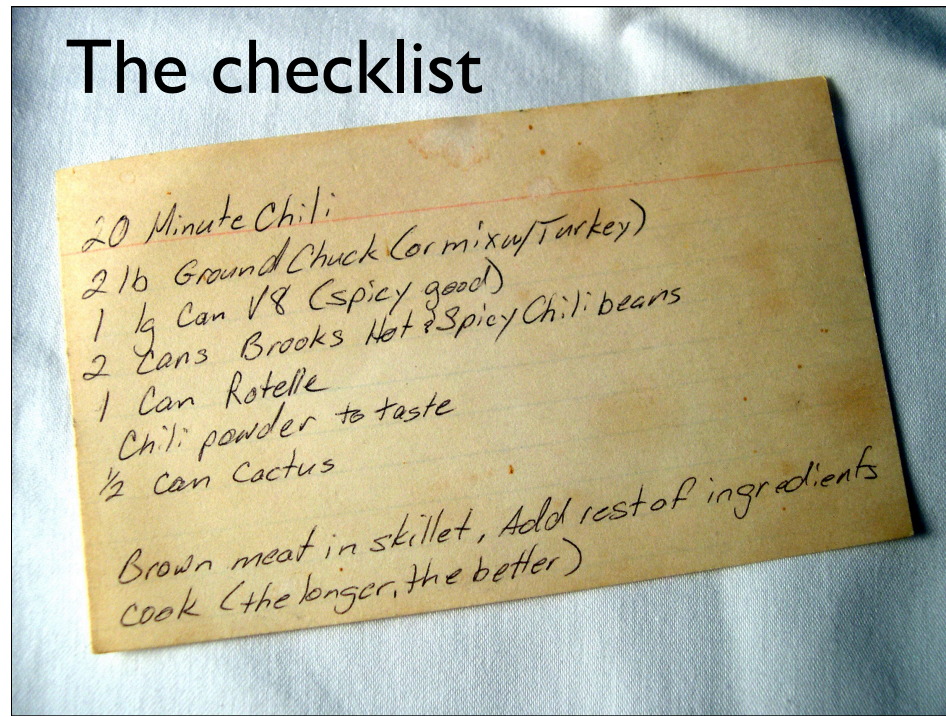 The checklist
20 Minute Chili
2 lb Ground Chuck (or mix w/Turkey)
1 lg Can V8 (spicy good)
2 Cans Brooks Hot & Spicy Chili beans
1 Can Rotelle
Chili powder to taste
1/2 can Cactus
Brown meat in skillet, Add rest of ingredients
cook (the longer, the better)